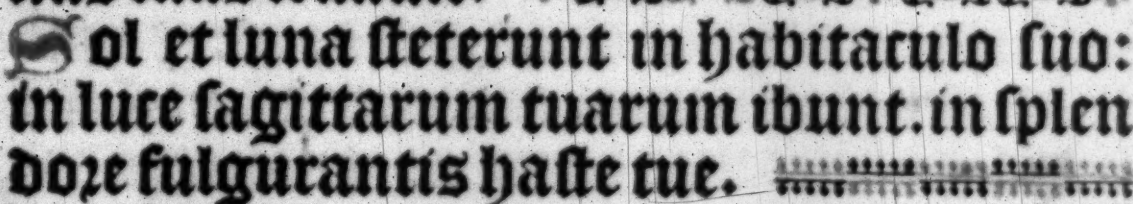 Sol et luna steterunt in habitaculo suo:
in luce sagittarum tuarum ibunt. in splen
dore fulgurantis haste tue.